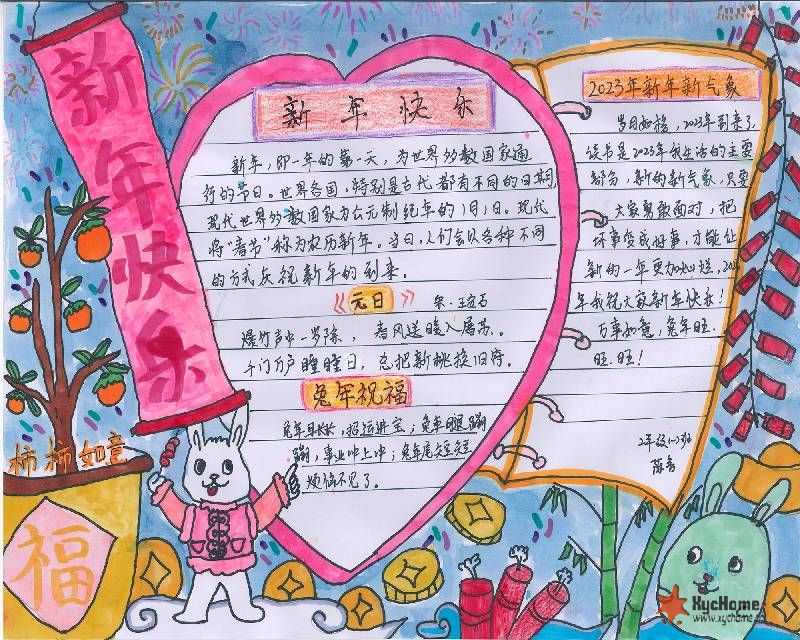 新年快乐
新年快乐
新年,即一年的第一天,为世界多数国家通
行的节日。世界各国,特别是古代都有不同的日期,
现代世界多数国家为公元制纪年的1月1日。现代
将"春节"称为农历新年。当日,人们会以各种不同
的方式庆祝新年的到来。
《元日》 宋·王安石
爆竹声中一岁除,春风送暖入屠苏。
千门万户曈曈日,总把新桃换旧符。
兔年祝福
兔年耳长长,招运进宝;兔年腿蹦
蹦,事业中上中;兔年尾短短,
烦恼不见了。
2023年新年新气象
岁月如梭,2023年到来了,
读书是2023年我生活的主要
部分,新的新气象,只要
大家勇敢面对,把
坏事变成好事,才能让
新的一年更加灿烂,202
年我祝大家新年快乐!
万事如意,兔年旺.
旺.旺!
2年级(一)班
柿柿如意
福
XycHome
www.xychome.c